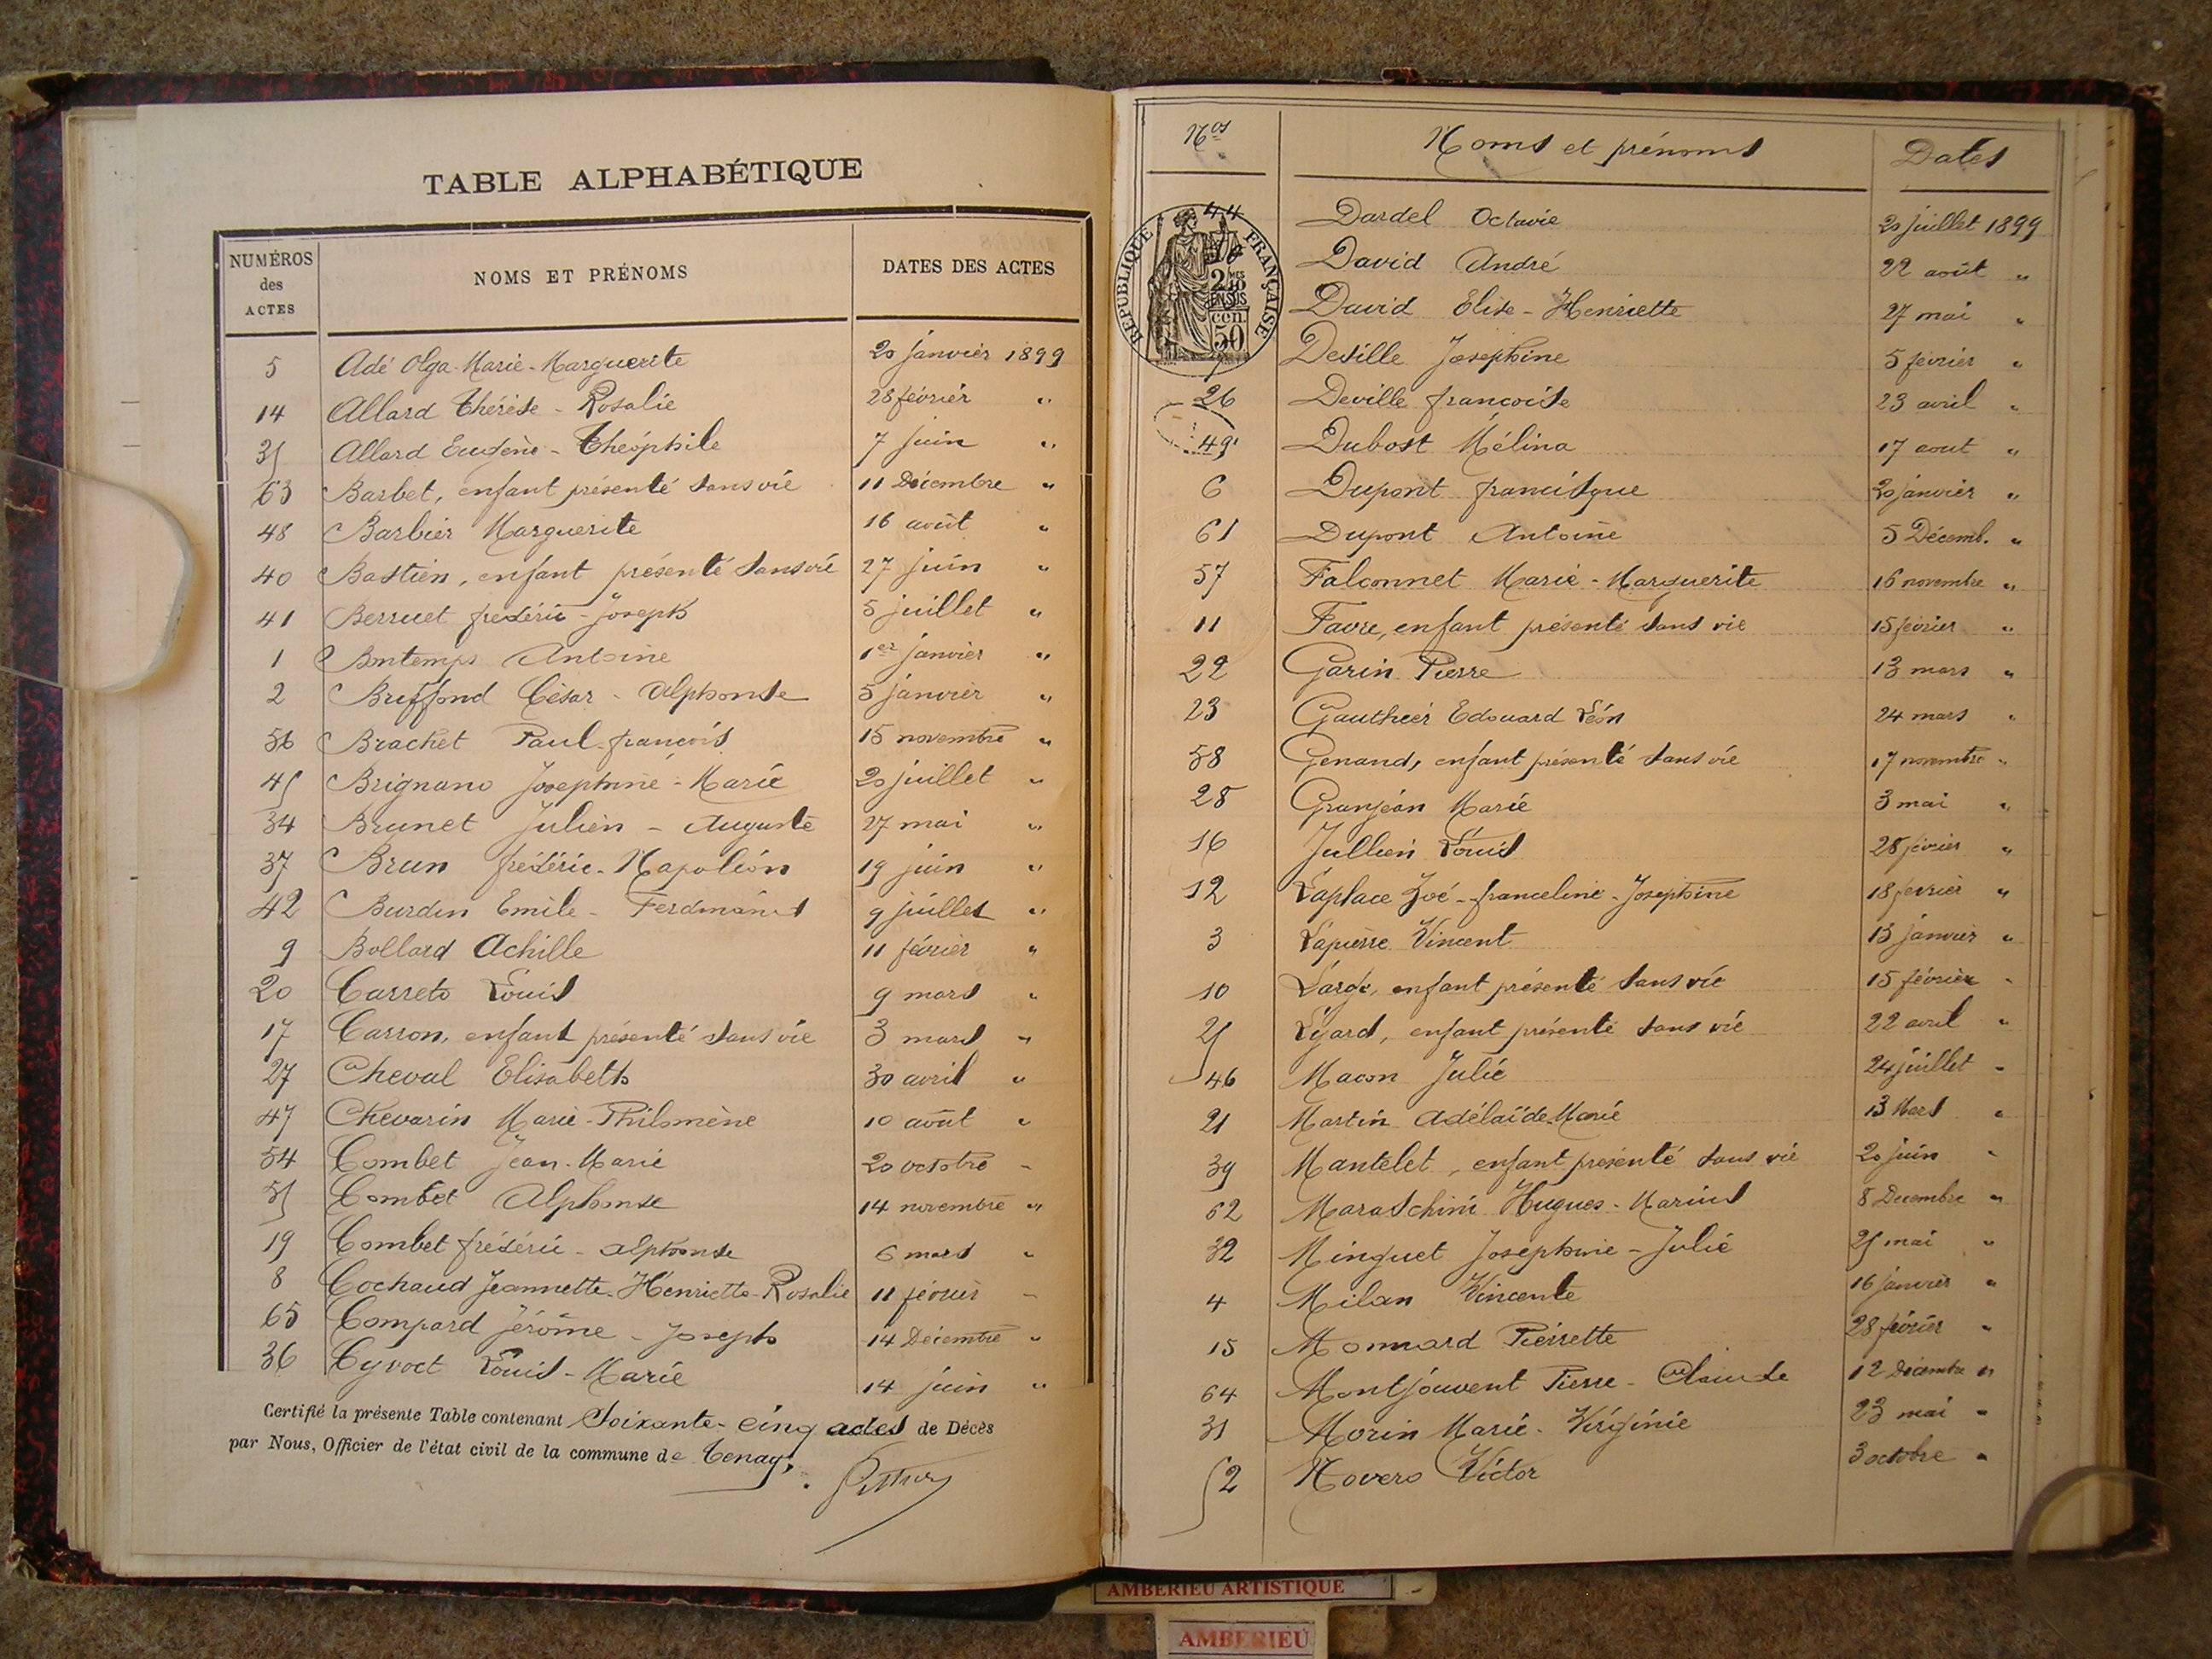 TABLE ALPHABÉTIQUE
NUMÉROS des ACTES NOMS ET PRÉNOMS DATES DES ACTES
5 Adé Olga-Marie-Marguerite 20 janvier 1899
14 Allard Thérèse-Rosalie 28 février "
35 Allard Eugène-Théophile 7 juin "
63 Barbet, enfant présenté sans vie 11 Décembre "
48 Barbier Marguerite 16 août "
40 Bastien, enfant présenté sans vie 27 juin "
41 Berruet frédéric-Joseph 5 juillet "
1 Bontemps Antoine 1er janvier "
2 Briffond César-Alphonse 5 janvier "
56 Brachet Paul-françois 15 novembre "
45 Brignano Josephine-Marie 20 juillet "
34 Brunet Julien-Auguste 27 mai "
37 Brun frédéric-Napoléon 19 juin "
42 Burdin Emile-Ferdinand 9 juillet "
9 Bollard Achille 11 février "
20 Carreto Louis 9 mars "
17 Carron, enfant présenté sans vie 3 mars "
27 Cheval Elisabeth 30 avril "
47 Chevarin Marie-Philomène 10 août "
54 Combet Jean-Marie 20 octobre "
55 Combet Alphonse 14 novembre "
19 Combet frédéric-alphonse 6 mars "
8 Cochaud Jeannette-Henriette-Rosalie 11 février "
65 Compard Jérôme-Joseph 14 Décembre "
36 Cyvoct Louis-Marie 14 juin "
Certifié la présente Table contenant Soixante-cinq actes de Décès
par Nous, Officier de l'état civil de la commune de Tenay.
Nos Noms et prénoms Dates
44 Dardel Octavie 20 juillet 1899
David André 22 août "
David Elise-Henriette 27 mai "
Desille Josephine 5 février "
RÉPUBLIQUE FRANÇAISE
2/10 EN SUS
50 cen
26 Deville françoise 23 avril "
49 Dubost Mélina 17 aout "
6 Dupont francisque 20 janvier "
61 Dupont Antoine 5 Décemb. "
57 Falconnet Marie-Marguerite 16 novembre "
11 Favre, enfant présenté sans vie 15 février "
22 Garin Pierre 13 mars "
23 Gauthier Edouard Léon 24 mars "
58 Genand, enfant présenté sans vie 17 novembre "
28 Granjean Marie 3 mai "
16 Jullien Louis 28 février "
12 Laplace Zoé-franceline-Josephine 18 fevrier "
3 Lapierre Vincent 13 janvier "
10 Large, enfant présenté sans vie 15 février "
25 Lyard, enfant présenté sans vie 22 avril "
46 Macon Julie 24 juillet "
21 Martin Adélaïde Marie 13 Mars "
39 Mantelet, enfant présenté sans vie 20 juin "
62 Maraschini Hugues-Marius 8 Decembre "
32 Minguet Josephine-Julie 25 mai "
4 Milan Vincente 16 janvier "
15 Monnard Pierrette 28 février "
64 Montjouvent Pierre-Claude 12 Décembre "
31 Morin Marie-Virginie 23 mai "
52 Novero Victor 3 octobre "
AMBERIEU ARTISTIQUE
AMBERIEU